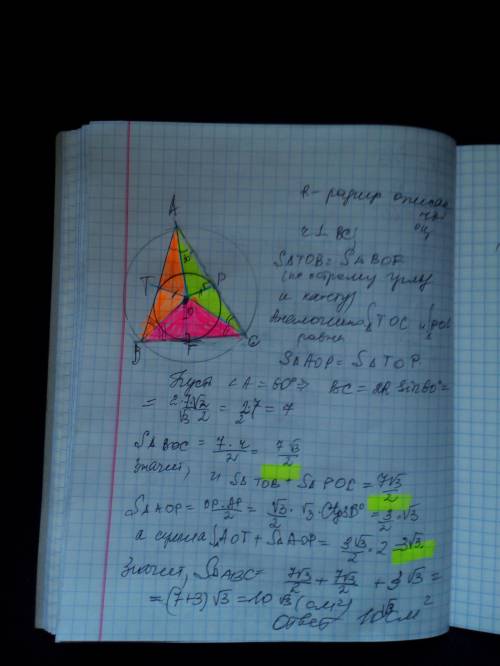 R - радиус описан
A
r ⊥ BC
S∆TOB = S∆BOF
(по острому углу
T P
и катету)
O
Аналогично S∆TOC и
равны
B F C
S∆AOP = S∆TOP
Пусть ∠A = 60° ⇒ BC = 2R sin60° =
= 2·7·√3/√3·2 = 2·7/2 = 7
S∆BOC = 7·r/2 = 7√3/2
значит, и S∆TOB + S∆POC = 7√3/2
S∆AOP = OP·AP/2 = √3/2 · √3 · Ctg30° = 3/2 · √3
а сумма S∆AOT + S∆AOP = 3√3/2 · 2 3√3
Значит, S∆ABC = 7√3/2 + 7√3/2 + 3√3 =
= (7+3)√3 = 10√3 (см²)
Ответ 10√3 см²